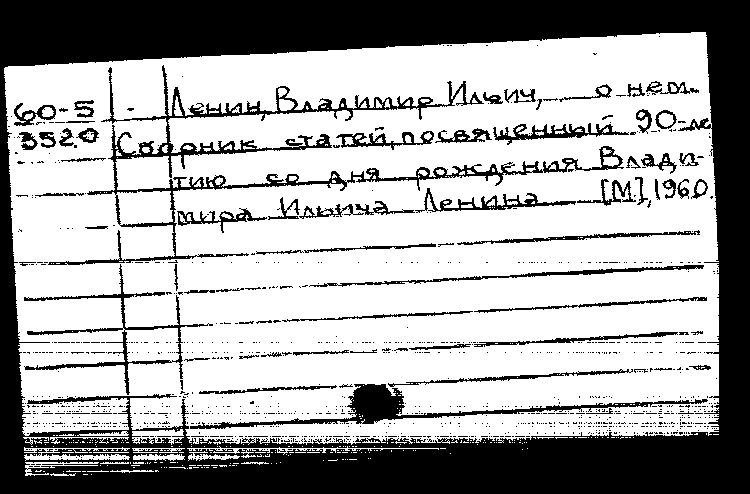 60-5 - Ленин, Владимир Ильич, о нем.
3520 Сборник статей, посвященный 90-ле
тию со дня рождения Влади-
мира Ильича Ленина [М], 1960.